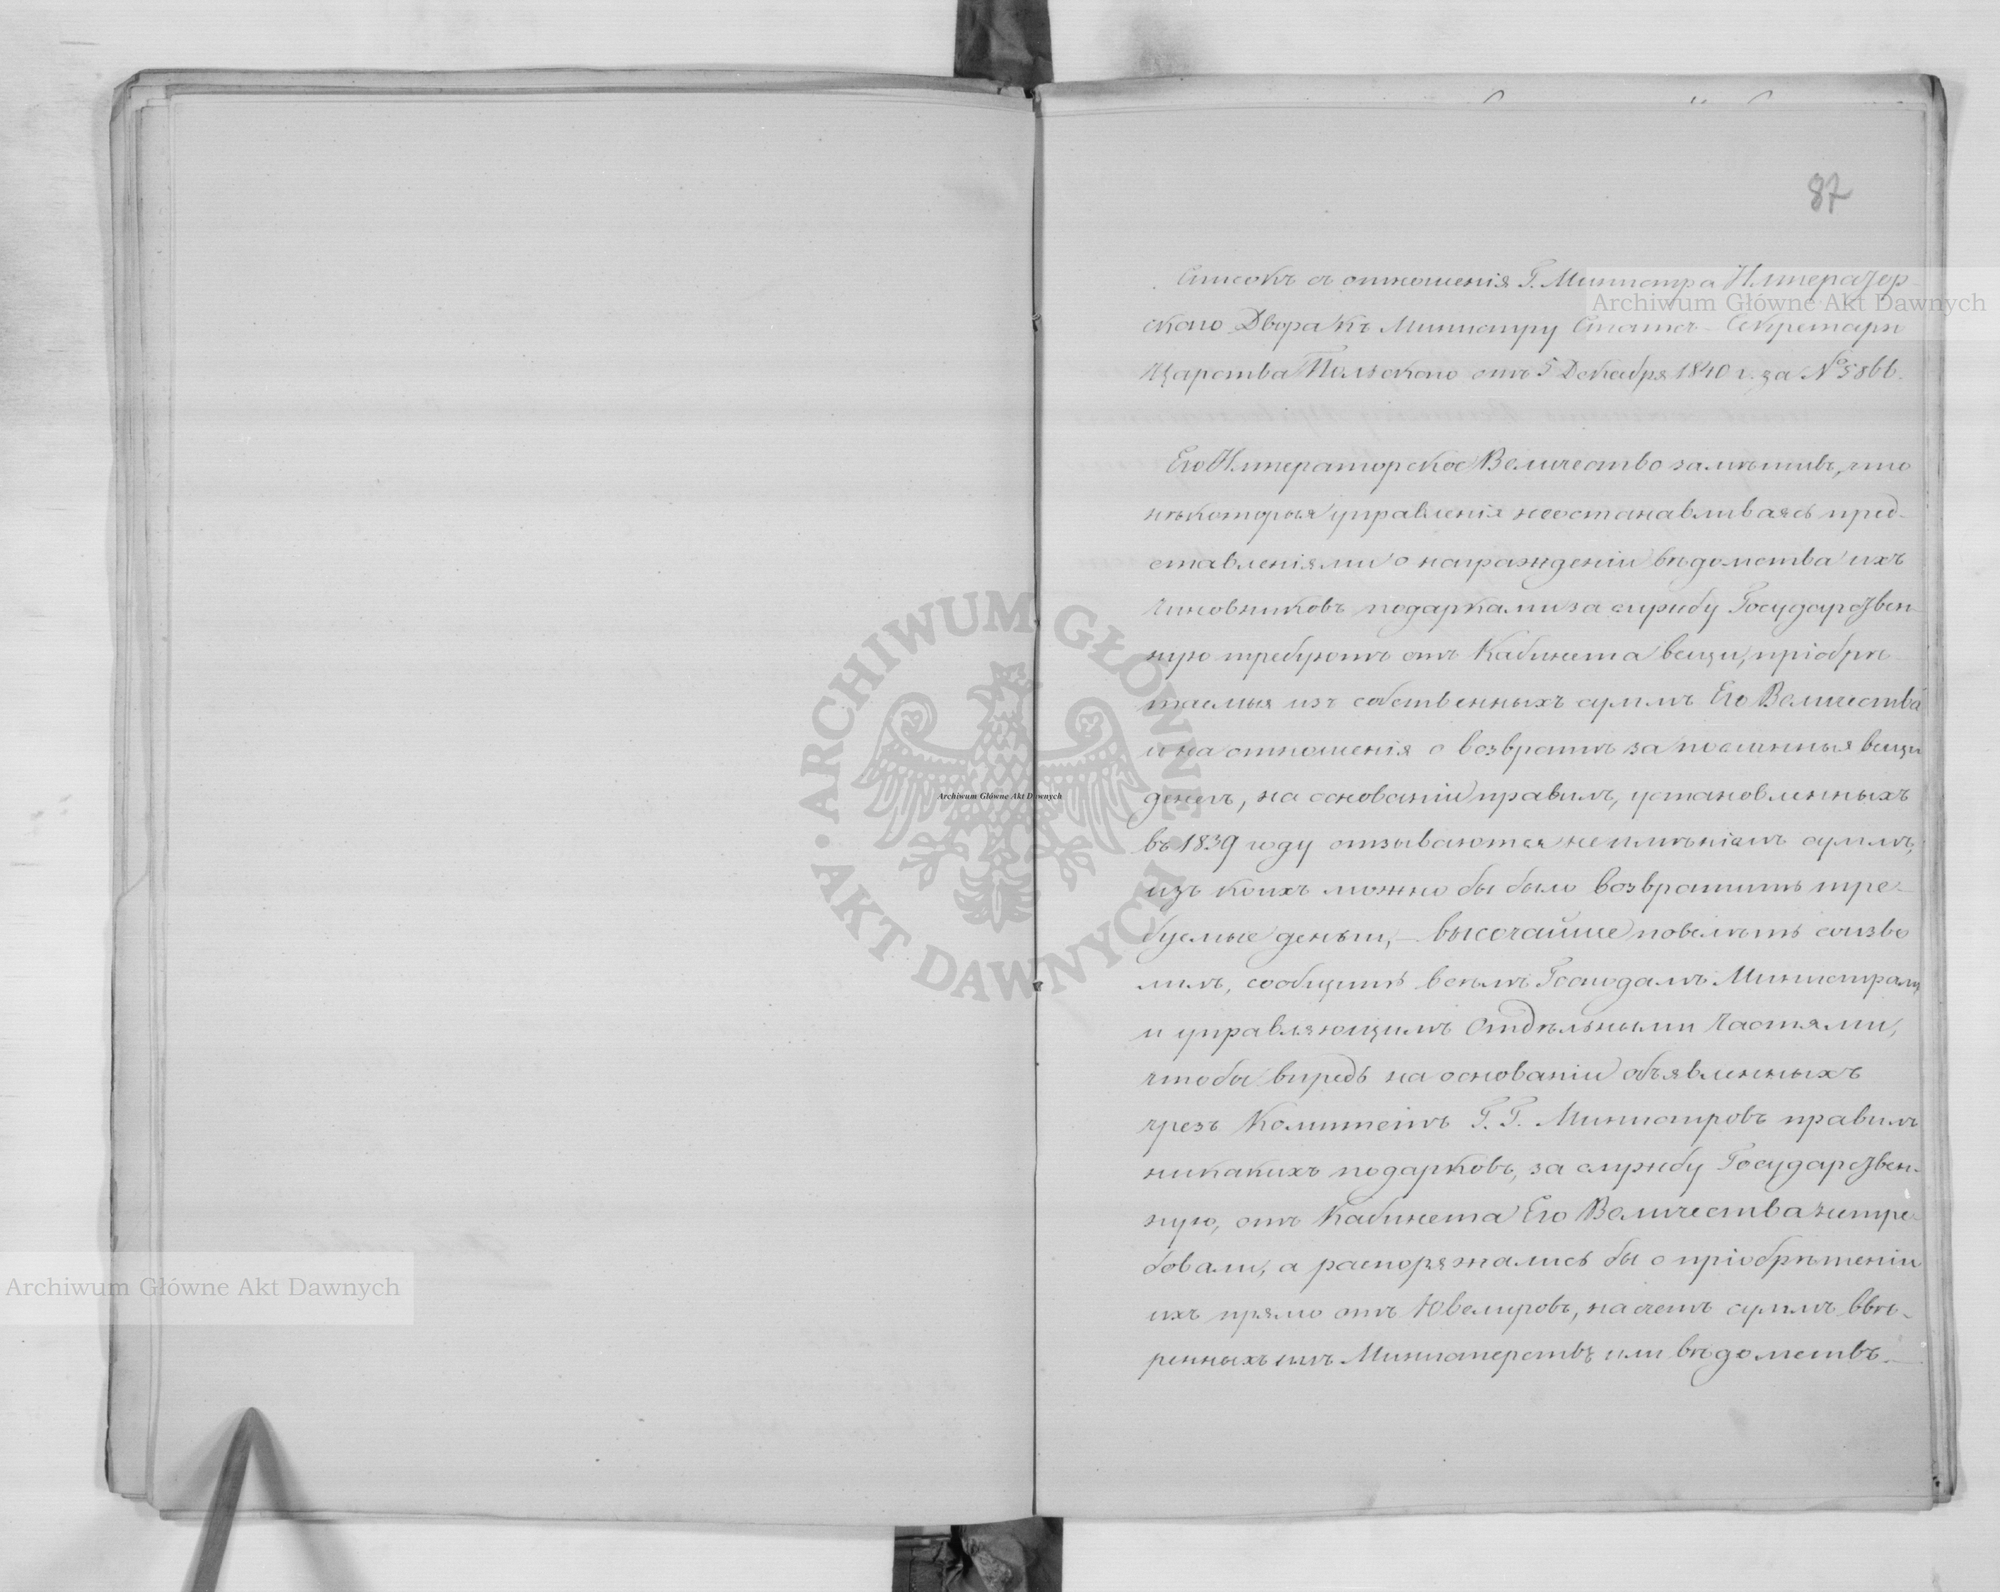 87
Списокъ съ отношенія Г. Министра Император-
скаго Двора къ Министру Статсъ-Секретарю
Царства Польскаго отъ 5 Декабря 1840 г. за № 5866.
Его Императорское Величество замѣтивъ, что
нѣкоторыя управленія неостанавливаясь пред-
ставленіями о награжденіи вѣдомства ихъ
чиновниковъ подарками за службу Государствен-
ную требуютъ отъ Кабинета вещи, пріобрѣ-
таемыя изъ собственныхъ суммъ Его Величества
и на отношенія о возвратѣ за посланныя вещи
денегъ, на основаніи правилъ, установленныхъ
въ 1839 году отзываются неимѣніемъ суммъ,
изъ коихъ можно бы было возвратить тре-
буемые деньги, – Высочайше повелѣть соизво
лилъ, сообщить всѣмъ Господамъ Министрамъ
и управляющимъ Отдѣльными Частями,
чтобы впредь на основаніи объявленныхъ
чрезъ Комитетъ Г. Г. Министровъ правилъ
никакихъ подарковъ, за службу Государствен-
ную, отъ Кабинета Его Величества нетре-
бовали, а распоряжались бы о пріобрѣтеніи
ихъ прямо отъ Ювелировъ, насчетъ суммъ ввѣ-
ренныхъ имъ Министерствъ или вѣдомствъ.
Archiwum Główne Akt Dawnych
Archiwum Główne Akt Dawnych
Archiwum Główne Akt Dawnych
· ARCHIWUM GŁÓWNE · AKT DAWNYCH